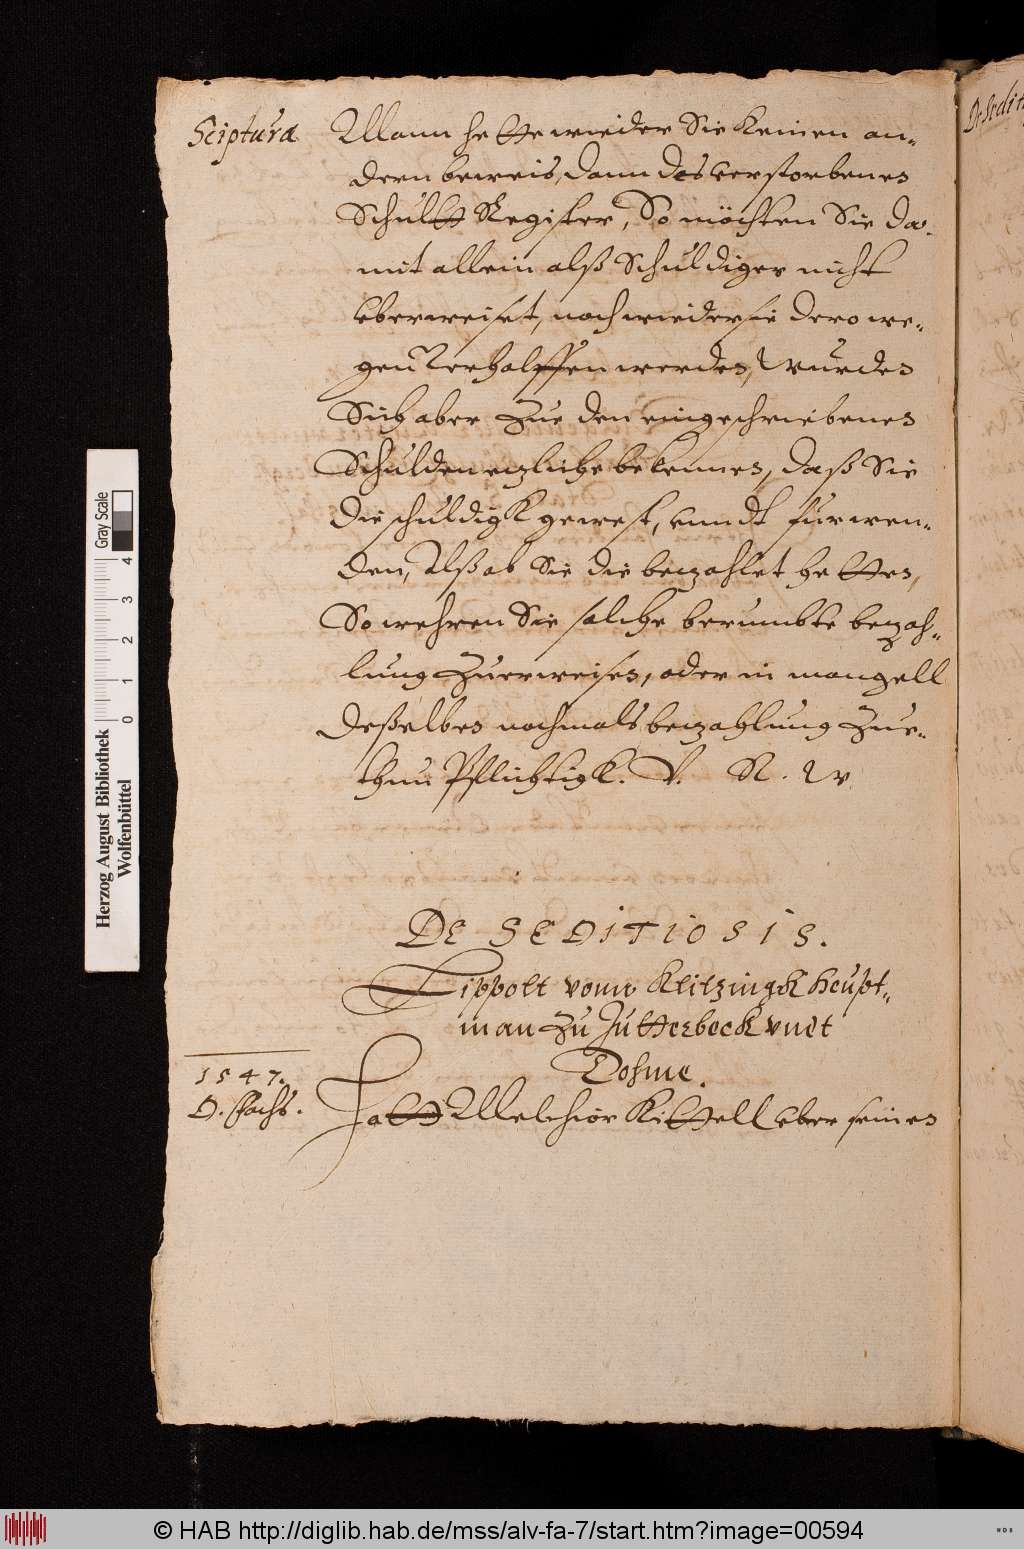 Sciptura
Mann hette wieder Sie keinen an-
dern beweis, dann des verstorbenes
Schultt Register, So möchten Sie da-
mit allein alß Schuldiger nicht
vberweiset, noch wieder sie dero we-
gen verholffen werdes, Wurdes
Sich aber Zue den eingeschriebenes
Schulden etzliche bekennes, daß Sie
die schuldigk gewest, vnndt furwen-
den, Alß ob Sie die bezahlet hettes,
So wehren Sie solche berumbte bezah-
lung Zuerweises, oder in mangell
deßelbes nochmals bezahlung Zue-
thun Pflichtigk. V. R. W
DE SEDITIOSIS.
Lippolt vonn Klitzingk Heupt-
man Zu Jutterbock vndt
Dohme.
1547.
D. Fachs.
Hatt Melchior Kittell vber seines
De Sedit
Herzog August Bibliothek
Wolfenbüttel
Gray Scale
0 1 2 3 4
© HAB http://diglib.hab.de/mss/alv-fa-7/start.htm?image=00594